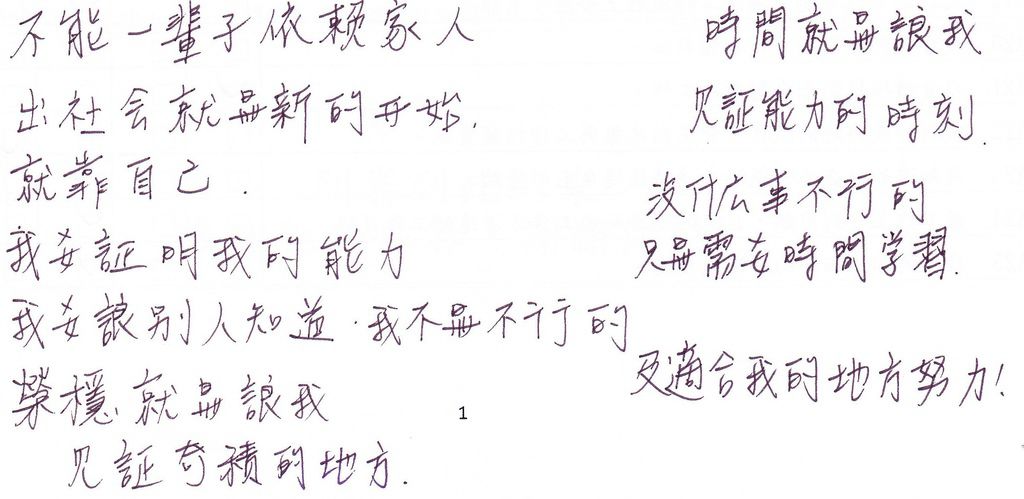 不能一輩子依賴家人
出社会就是新的开始.
就靠自己.
我要証明我的能力
我要讓別人知道.我不是不行的
榮穩就是讓我
见証奇積的地方.
1
時間就是讓我
见証能力的時刻.
沒什么事不行的
只是需要時間学習.
及適合我的地方努力!